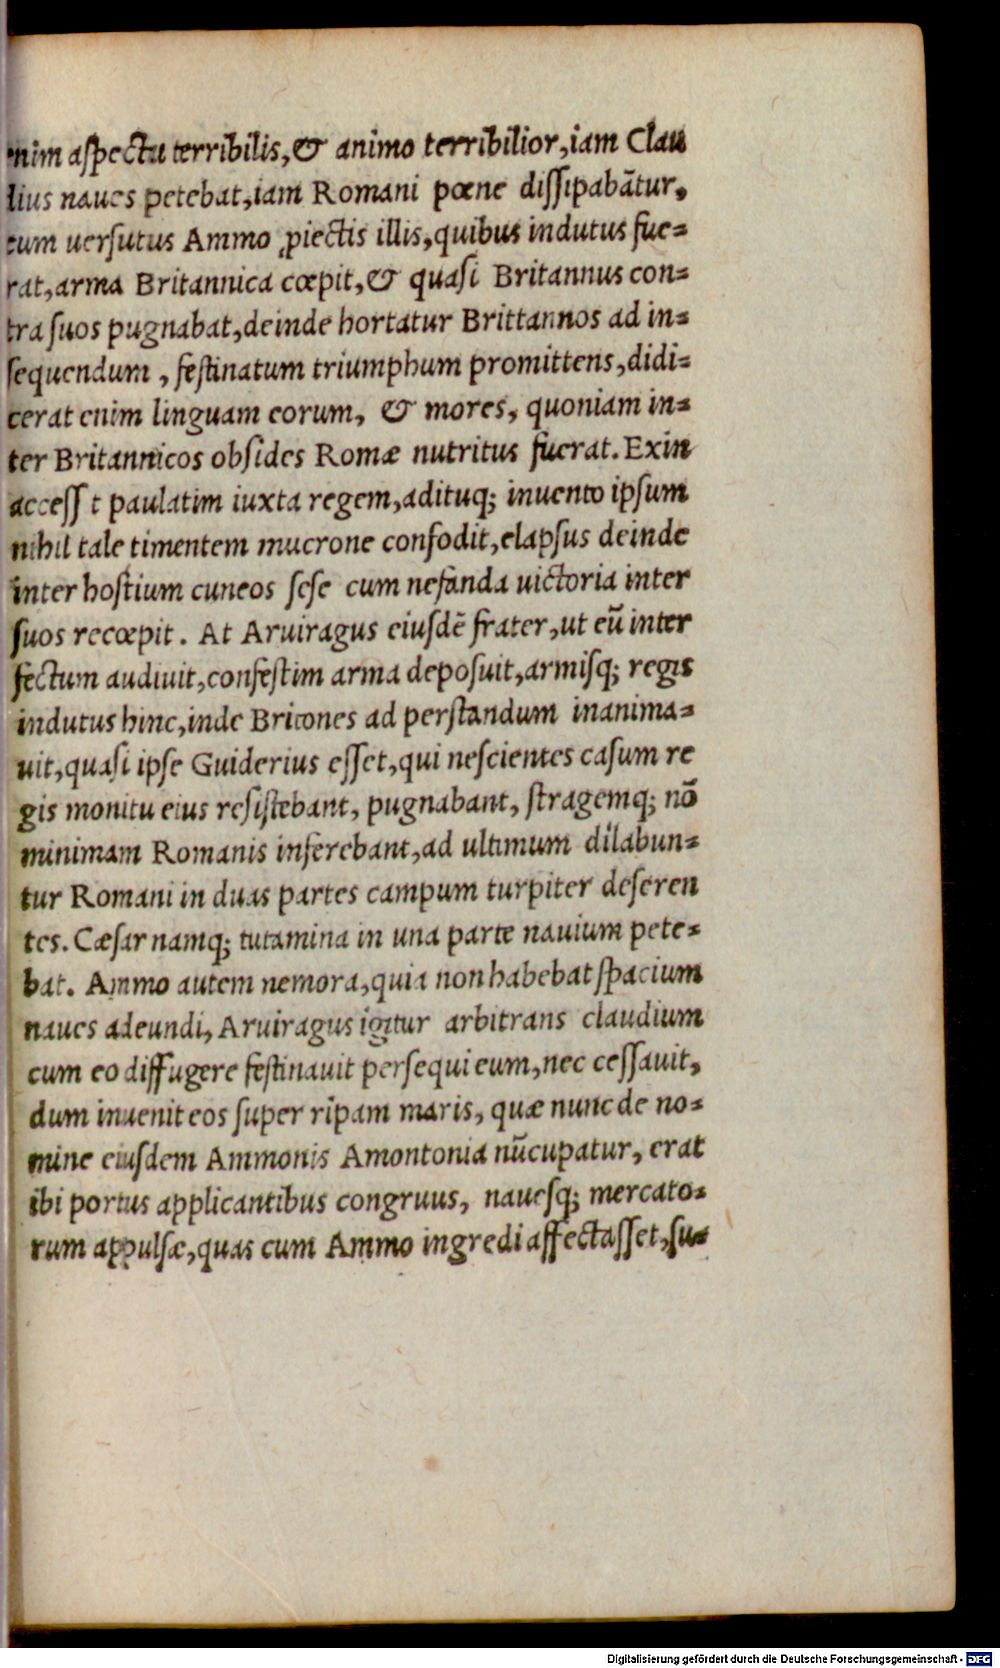 enim aſpectu terribilis, & animo terribilior, iam Clau
dius naues petebat, iam Romani pœne diſſipabātur,
cum uerſutus Ammo ꝓiectis illis, quibus indutus fue-
rat, arma Britannica cœpit, & quaſi Britannus con-
tra ſuos pugnabat, deinde hortatur Brittannos ad in-
ſequendum, feſtinatum triumphum promittens, didi-
cerat enim linguam eorum, & mores, quoniam in-
ter Britannicos obſides Romæ nutritus fuerat. Exin
acceſſ t paulatim iuxta regem, adituq; inuento ipſum
nihil tale timentem mucrone confodit, elapſus deinde
inter hoſtium cuneos ſeſe cum nefanda uictoria inter
ſuos recœpit. At Aruiragus eiuſdē frater, ut eū inter
fectum audiuit, confeſtim arma depoſuit, armiſq; regis
indutus hinc, inde Britones ad perſtandum inanima-
uit, quaſi ipſe Guiderius eſſet, qui neſcientes caſum re
gis monitu eius reſiſtebant, pugnabant, ſtragemq; nō
minimam Romanis inferebant, ad ultimum dilabun-
tur Romani in duas partes campum turpiter deſeren
tes. Cæſar namq; tutamina in una parte nauium pete-
bat. Ammo autem nemora, quia non habebat ſpacium
naues adeundi, Aruiragus igitur arbitrans claudium
cum eo diffugere feſtinauit perſequi eum, nec ceſſauit,
dum inuenit eos ſuper ripam maris, quæ nunc de no-
mine eiuſdem Ammonis Amontonia nūcupatur, erat
ibi portus applicantibus congruus, naueſq; mercato-
rum appulſæ, quas cum Ammo ingredi affectaſſet, ſu-
Digitalisierung gefördert durch die Deutsche Forschungsgemeinschaft - DFG